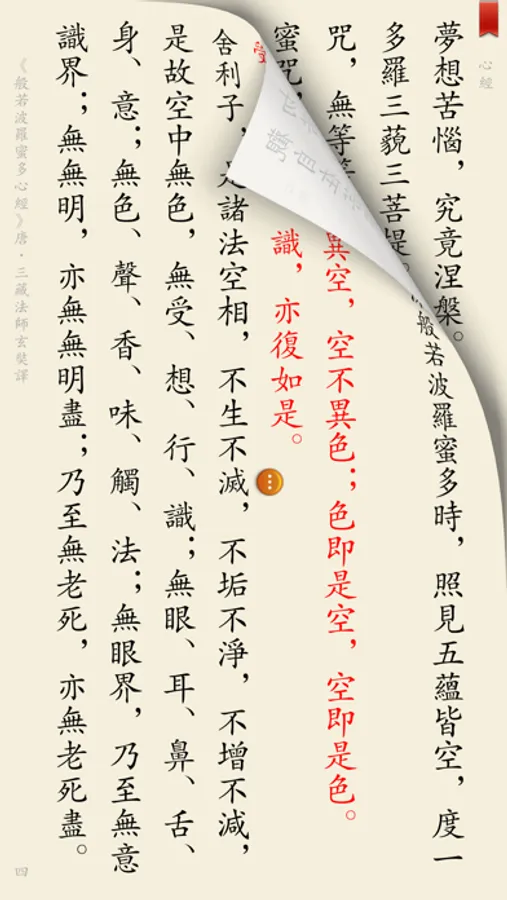 心經
夢想苦惱，究竟涅槃。
般若波羅蜜多時，照見五蘊皆空，度一
多羅三藐三菩提。
咒，無等等
異空，空不異色；色即是空，空即是色。
蜜咒，
受
識，亦復如是。
舍利子，是諸法空相，不生不滅，不垢不淨，不增不減，
是故空中無色，無受、想、行、識；無眼、耳、鼻、舌、
身、意；無色、聲、香、味、觸、法；無眼界，乃至無意
識界；無無明，亦無無明盡；乃至無老死，亦無老死盡。
《般若波羅蜜多心經》唐·三藏法師玄奘譯
四